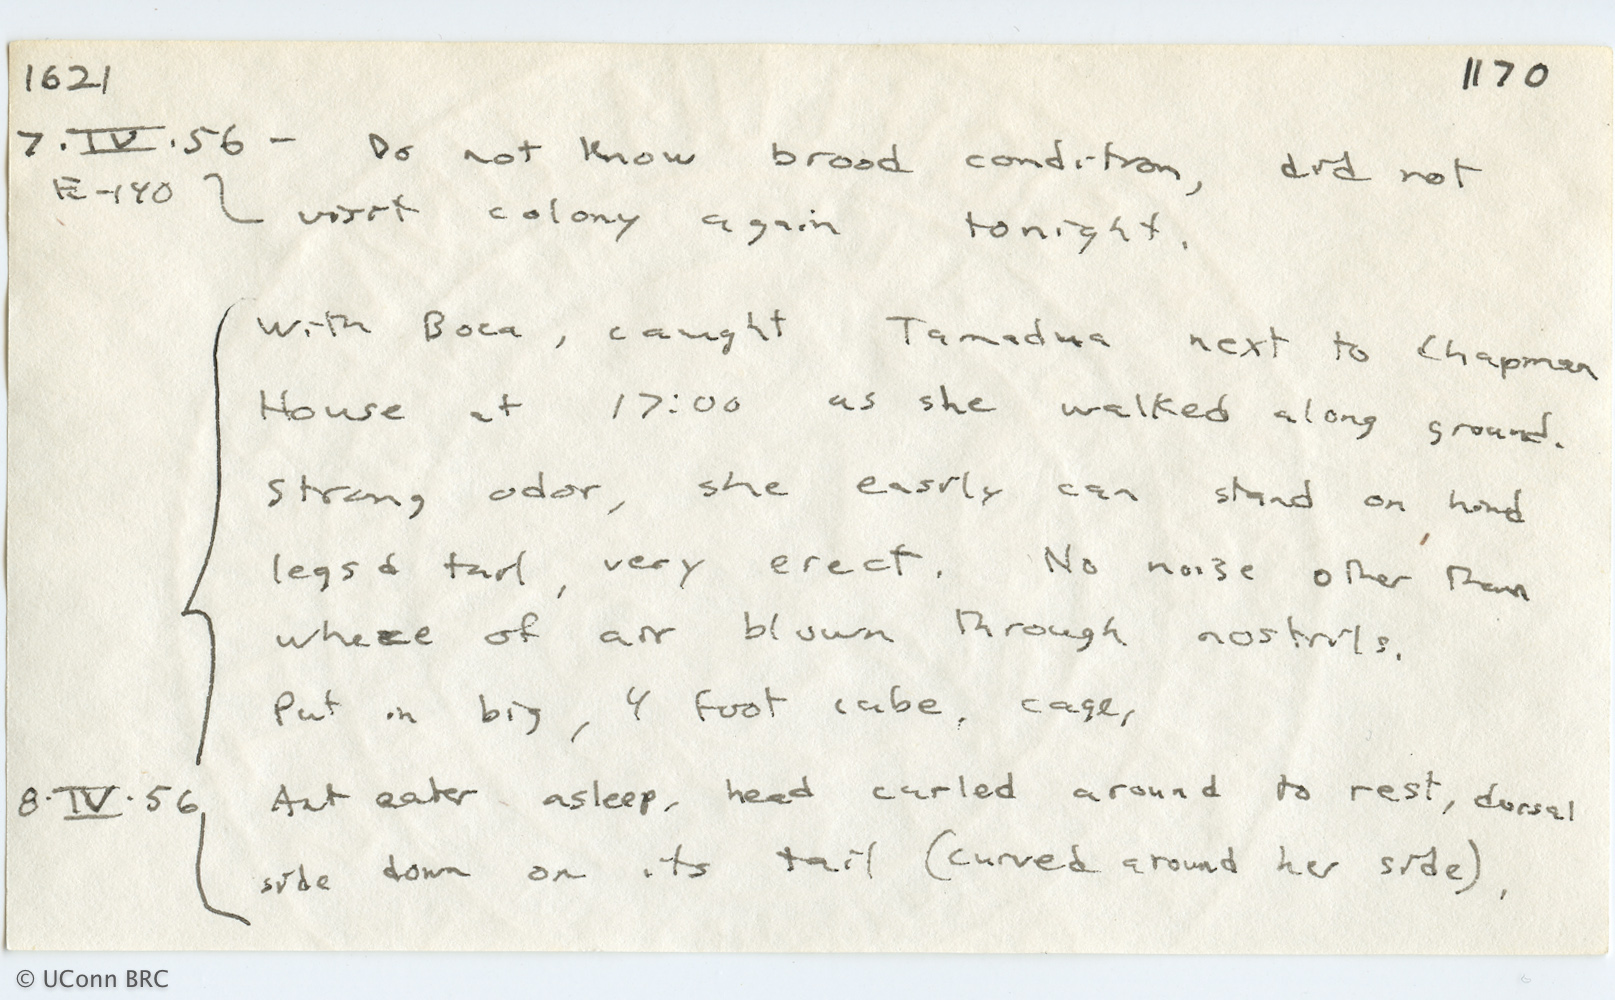 1621 1170
7.IV.56 - Do not know brood condition, did not
E-140 visit colony again tonight.
With Boca, caught Tamadua next to Chapman
House at 17:00 as she walked along ground.
Strong odor, she easily can stand on hind
legs & tail, very erect. No noise other than
wheeze of air blown through nostrils.
Put in big, 4 foot cube, cage,
8.IV.56 Ant eater asleep, head curled around to rest, dorsal
side down on its tail (curved around her side),
© UConn BRC